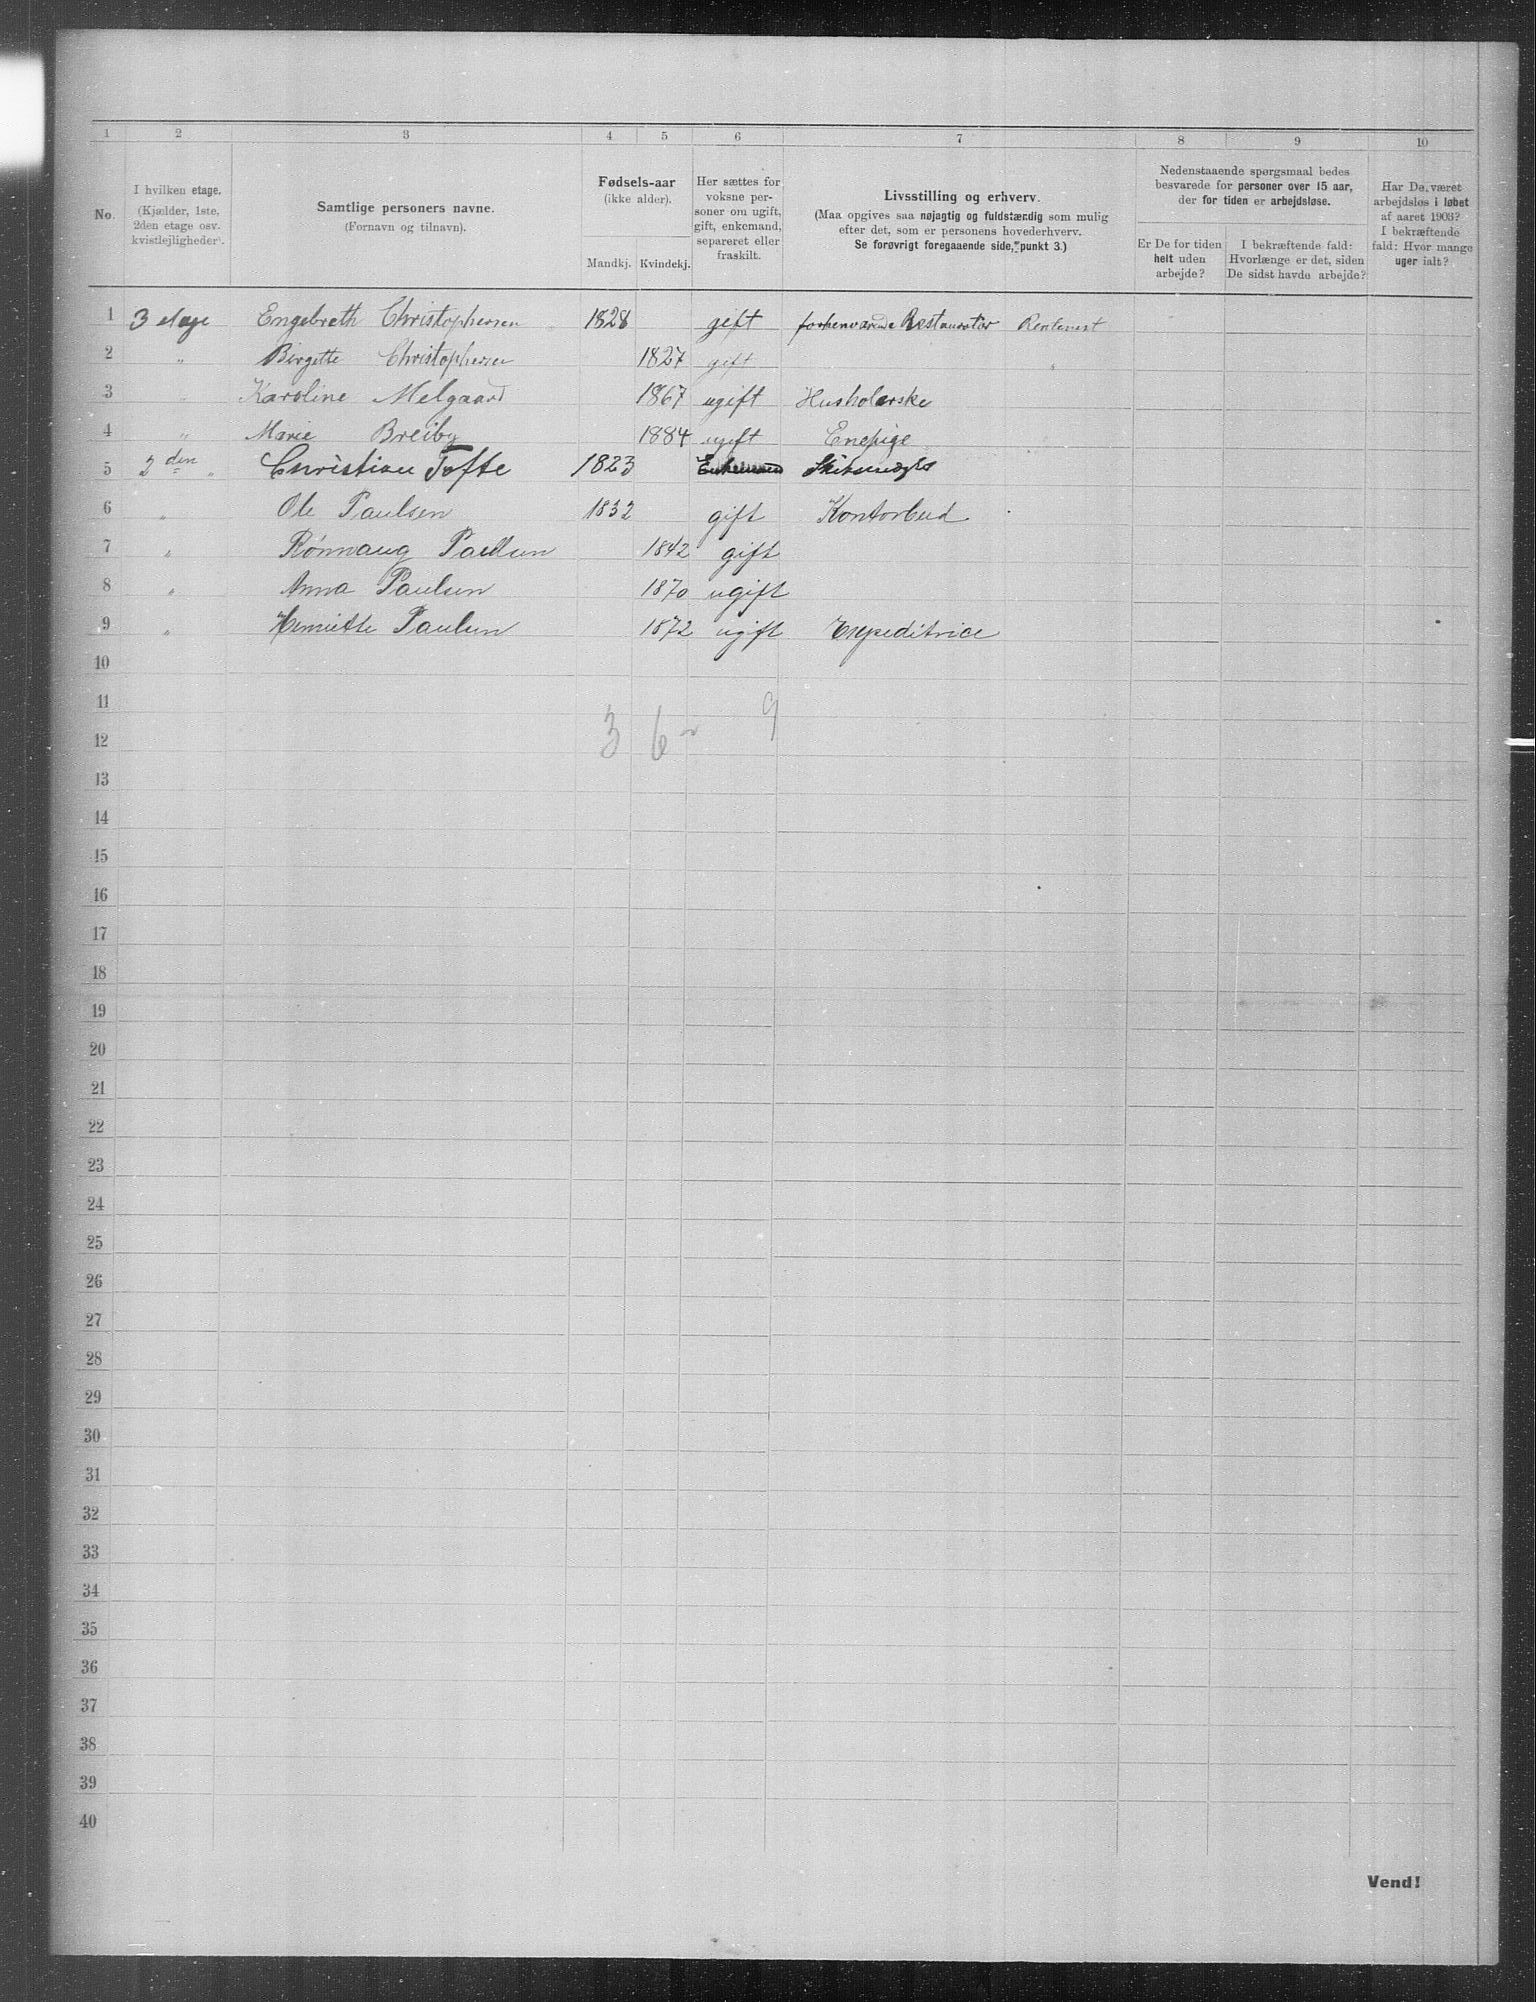 1 2 3 4 5 6 7 8 9 10
No.
I hvilken etage.
(Kjælder, 1ste,
2den etage osv.
kvistlejligheder).
Samtlige personers navne.
(Fornavn og tilnavn).
Fødsels-aar
(ikke alder).
Mandkj. Kvindekj.
Her sættes for
voksne per-
soner om ugift,
gift, enkemand,
separeret eller
fraskilt.
Livsstilling og erhverv.
(Maa opgives saa nøjagtig og fuldstændig som mulig
efter det, som er personens hovederhverv.
Se forøvrigt foregaaende side, punkt 3.)
Nedenstaaende spørgsmaal bedes
besvarede for personer over 15 aar,
der for tiden er arbejdsløse.
Er De for tiden
helt uden
arbejde?
I bekræftende fald:
Hvorlænge er det, siden
De sidst havde arbejde?
Har De været
arbejdsløs i løbet
af aaret 1903?
I bekræftende
fald: Hvor mange
uger ialt?
1 3 etage Engebreth Christophersen 1828 gift forhenværende Restauratør Rentenist
2 " Birgitte Christophersen 1827 gift "
3 " Karoline Melgaard 1867 ugift Husholerske
4 " Marie Breiby 1884 ugift Enepige
5 2den " Christian Tofte 1823 Enkemand
6 " Ole Paulsen 1832 gift Kontorbud
7 " Rønnaug Paulsen 1842 gift
8 " Anna Paulsen 1870 ugift
9 " Henriette Paulsen 1872 ugift Expeditrice
10
11
12 3 6 9
13
14
15
16
17
18
19
20
21
22
23
24
25
26
27
28
29
30
31
32
33
34
35
36
37
38
39
40
Vend!